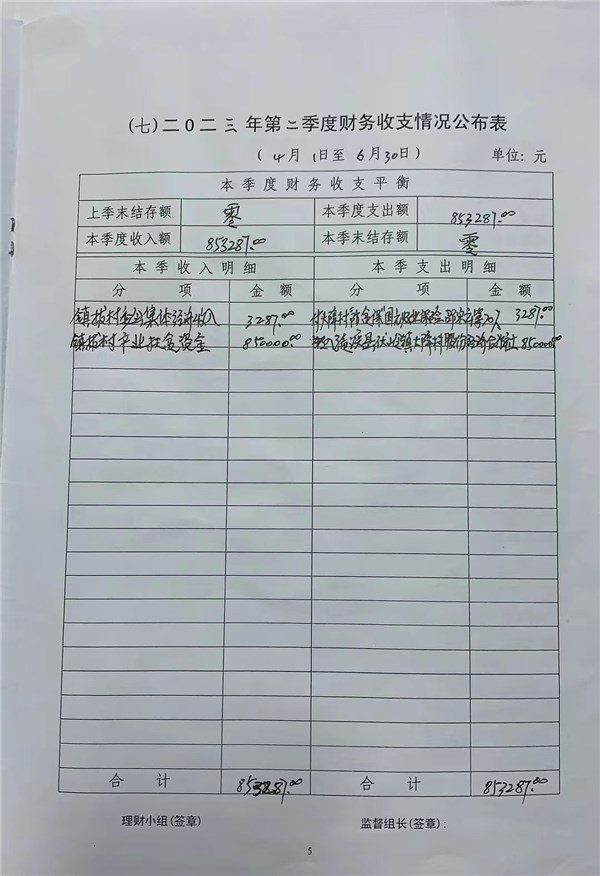 (七)二〇二三年第二季度财务收支情况公布表
(4月1日至6月30日) 单位:元
本季度财务收支平衡
上季末结存额 零 本季度支出额 853287.00
本季度收入额 853287.00 本季末结存额 零
本季收入明细 本季支出明细
分项 金额 分项 金额
镇拨村 集体经济收入 3287.00 3287.00
镇拨村产业扶贫资金 850000.00 850000.00
合计 853287.00 合计 853287.00
理财小组(签章) 监督组长(签章):
5